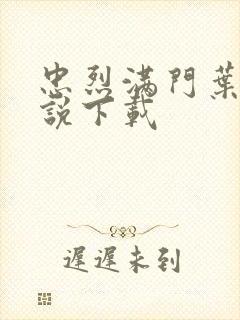 忠烈满門葉
說下載
遲遲未到